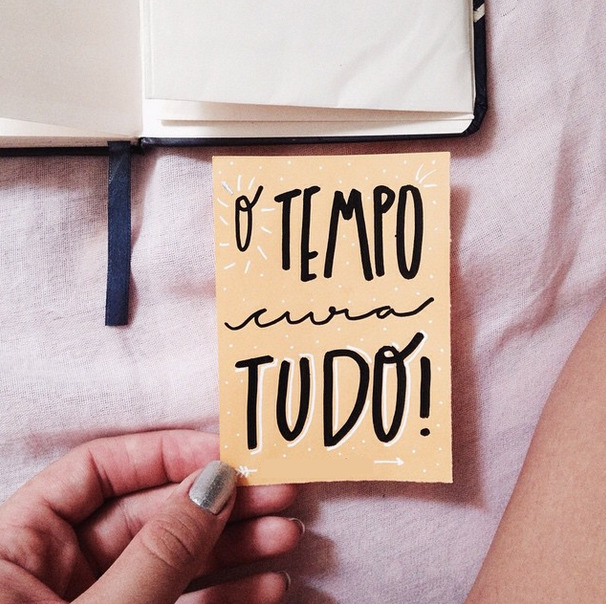 O TEMPO
cura
TUDO!